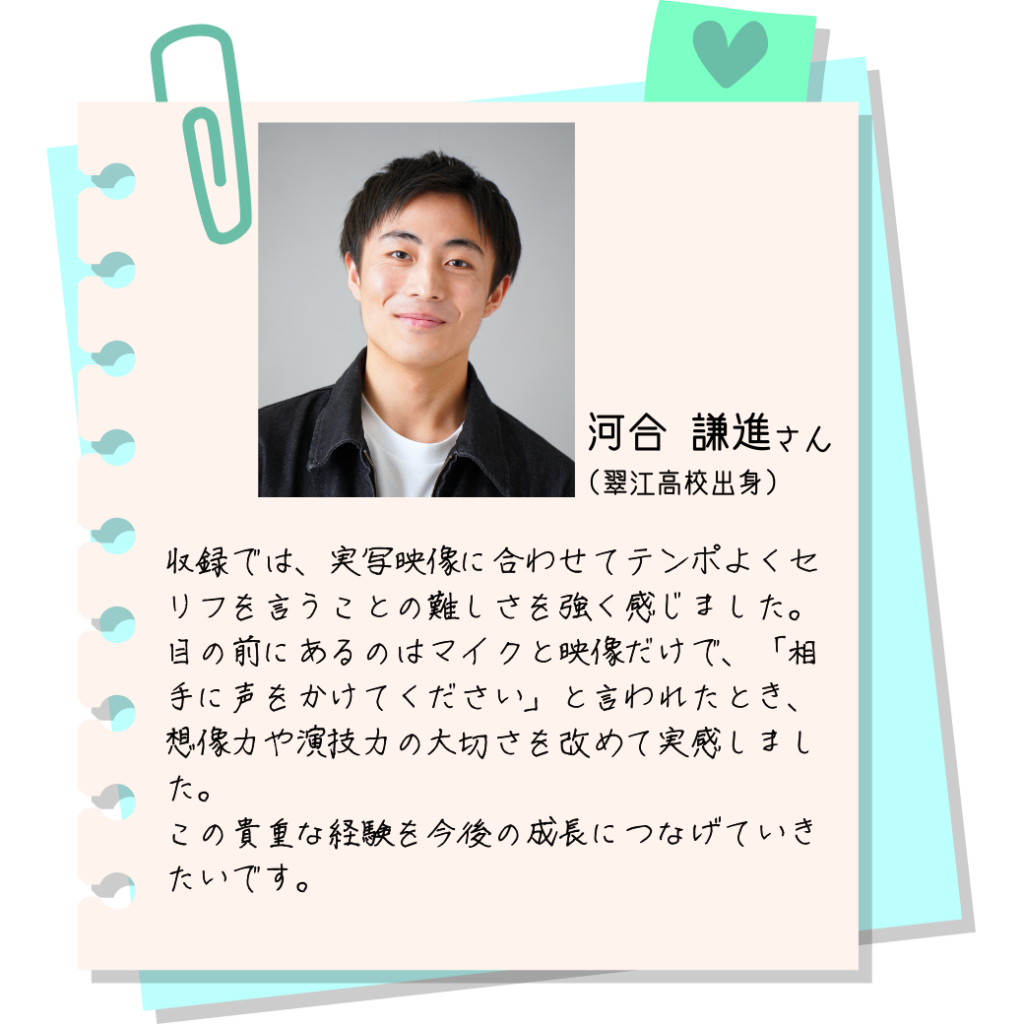 河合 謙進さん
（翠江高校出身）
収録では、実写映像に合わせてテンポよくセ
リフを言うことの難しさを強く感じました。
目の前にあるのはマイクと映像だけで、「相
手に声をかけてください」と言われたとき、
想像力や演技力の大切さを改めて実感しまし
た。
この貴重な経験を今後の成長につなげていき
たいです。